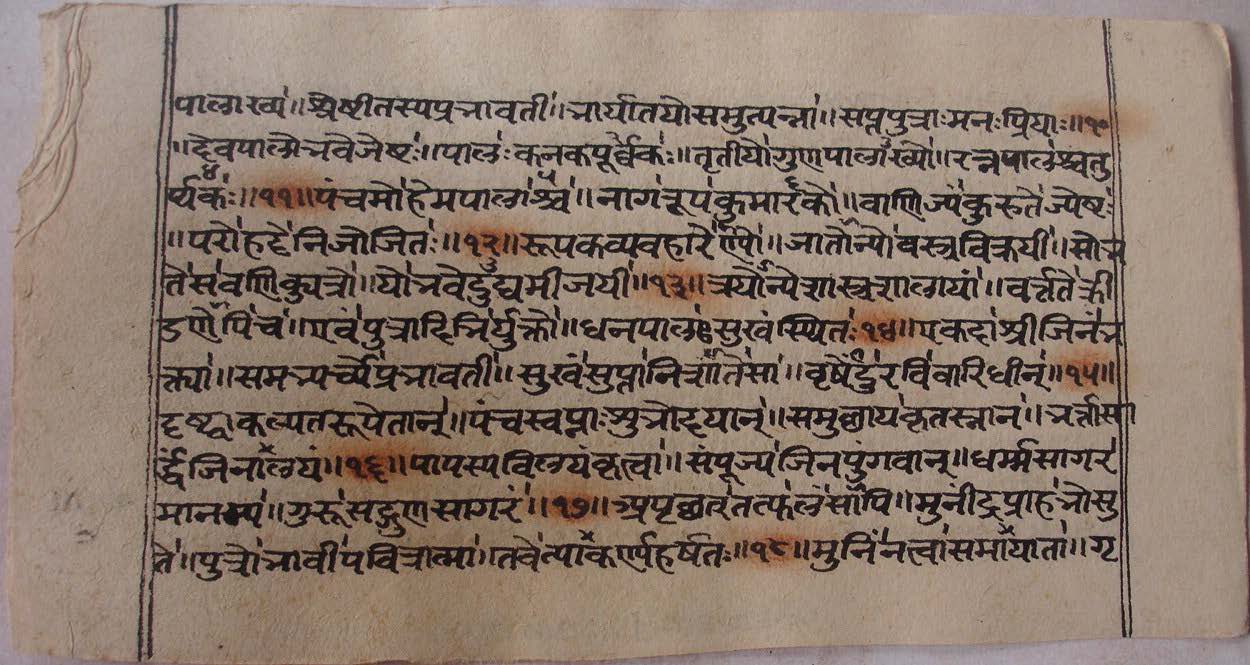 पालाख्य॥श्रेष्ठीतस्यप्रभावती॥भार्यातयोसमुत्पन्ना॥सप्तपुत्राःमनःप्रियाः॥१०
॥देवपालोभवेज्येष्टः॥पालःकनकपूर्वकः॥तृतीयोगुणपालाख्यो॥रत्नपालश्चतु
र्थकः॥११॥पंचमोहेमपालश्च॥नागरूपकुमारकौ॥वाणिज्यंकुरुतेज्येष्टः
॥परोहट्टेनिजोजितः॥१२॥रूपकव्यवहारेर्णो॥जातोन्योवस्त्रविक्रयी॥सोत्र
तेसवणिक्पुत्रो॥योभवेद्दुग्धमीजयी॥१३॥त्रयोन्येशास्त्रशालायां॥वर्त्ततेक्री
डणेपिच॥एवंपुत्रादिभिर्युक्तो॥धनपालःसुखंस्थितः॥१४॥एकदाश्रीजिनंभ
क्त्या॥समभ्यर्च्यप्रभावती॥सुखंसुप्तानिशांतेसा॥वृषेंदुरविवारिधीन्॥१५॥
दृष्ट्वाकल्पतरूपेतान्॥पंचस्वप्नाःशुभोदयान्॥समुछायकृतस्नान॥भर्त्तासा
र्द्धंजिनालयं॥१६॥पापस्यविलयंकृत्वा॥संपूज्यजिनपुंगवान्॥धर्म्मसागर
मानम्य॥गुरूंसद्गुणसागरं॥१७॥अपृछत्वतत्फलंसोपि॥मुनींद्रप्राहभोसु
ते॥पुत्रोभावीपवित्रात्मा॥तवेत्याकर्ण्णहर्षतः॥१८॥मुनिंनत्वासमायाता॥गृ